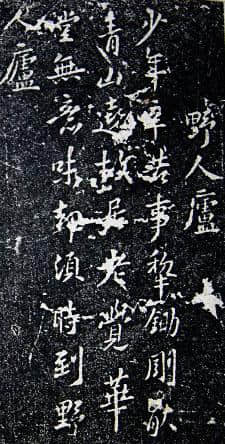 野人廬
少年辛苦事犁鋤剛厭
青山遶故居老覺華
堂無意味却須時到野
人廬